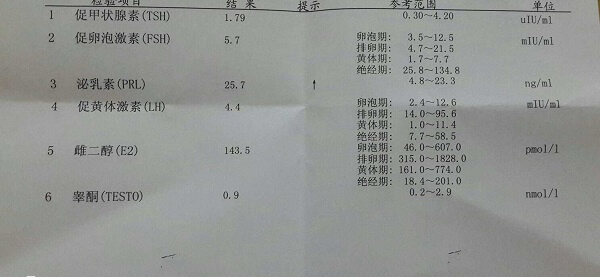 检验项目 结 果 提示 参考范围 单位
1 促甲状腺素(TSH) 1.79 0.30～4.20 uIU/ml
2 促卵泡激素(FSH) 5.7 卵泡期: 3.5～12.5 mIU/ml
排卵期: 4.7～21.5
黄体期: 1.7～7.7
绝经期: 25.8～134.8
3 泌乳素(PRL) 25.7 ↑ 4.8～23.3 ng/ml
4 促黄体激素(LH) 4.4 卵泡期: 2.4～12.6 mIU/ml
排卵期: 14.0～95.6
黄体期: 1.0～11.4
绝经期: 7.7～58.5
5 雌二醇(E2) 143.5 卵泡期: 46.0～607.0 pmol/l
排卵期: 315.0～1828.0
黄体期: 161.0～774.0
绝经期: 18.4～201.0
6 睾酮(TESTO) 0.9 0.2～2.9 nmol/l